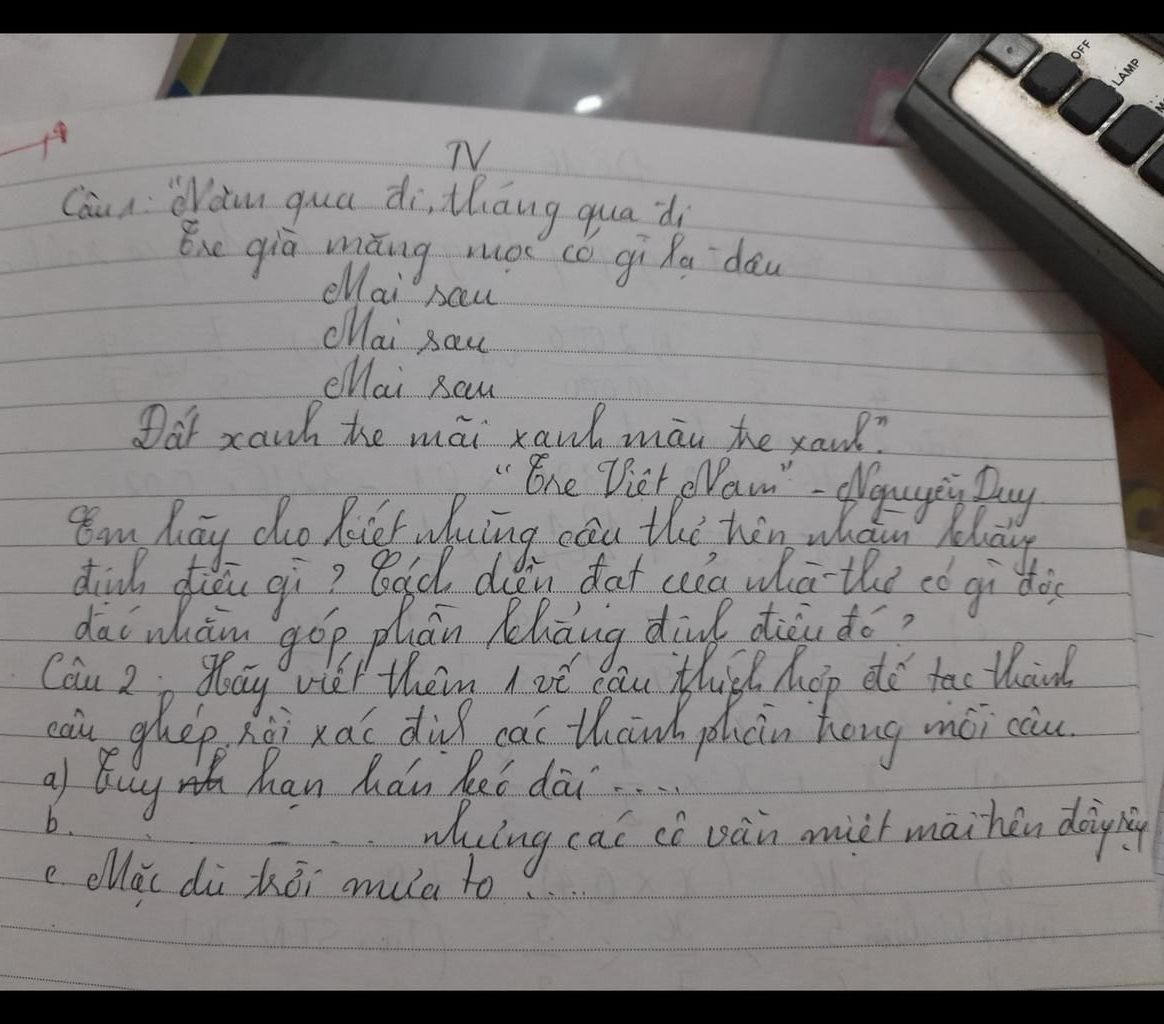 TV
Câu 1: "Năm qua đi, tháng qua đi
Tre già măng mọc có gì lạ đâu
Mai sau
Mai sau
Mai sau
Đất xanh tre mãi xanh màu tre xanh."
"Tre Việt Nam" - Nguyễn Duy
Em hãy cho biết những câu thơ trên nhằm khẳng
định điều gì? Cách diễn đạt của nhà thơ có gì độc
đáo nhằm góp phần khẳng định điều đó?
Câu 2: Hãy viết thêm 1 vế câu thích hợp để tạo thành
câu ghép rồi xác định các thành phần trong mỗi câu.
a) Tuy hạn hán kéo dài ....
b. . - . . nhưng các cô vẫn miệt mài trên đồng ruộng
c. Mặc dù trời mưa to .....
OFF
LAMP